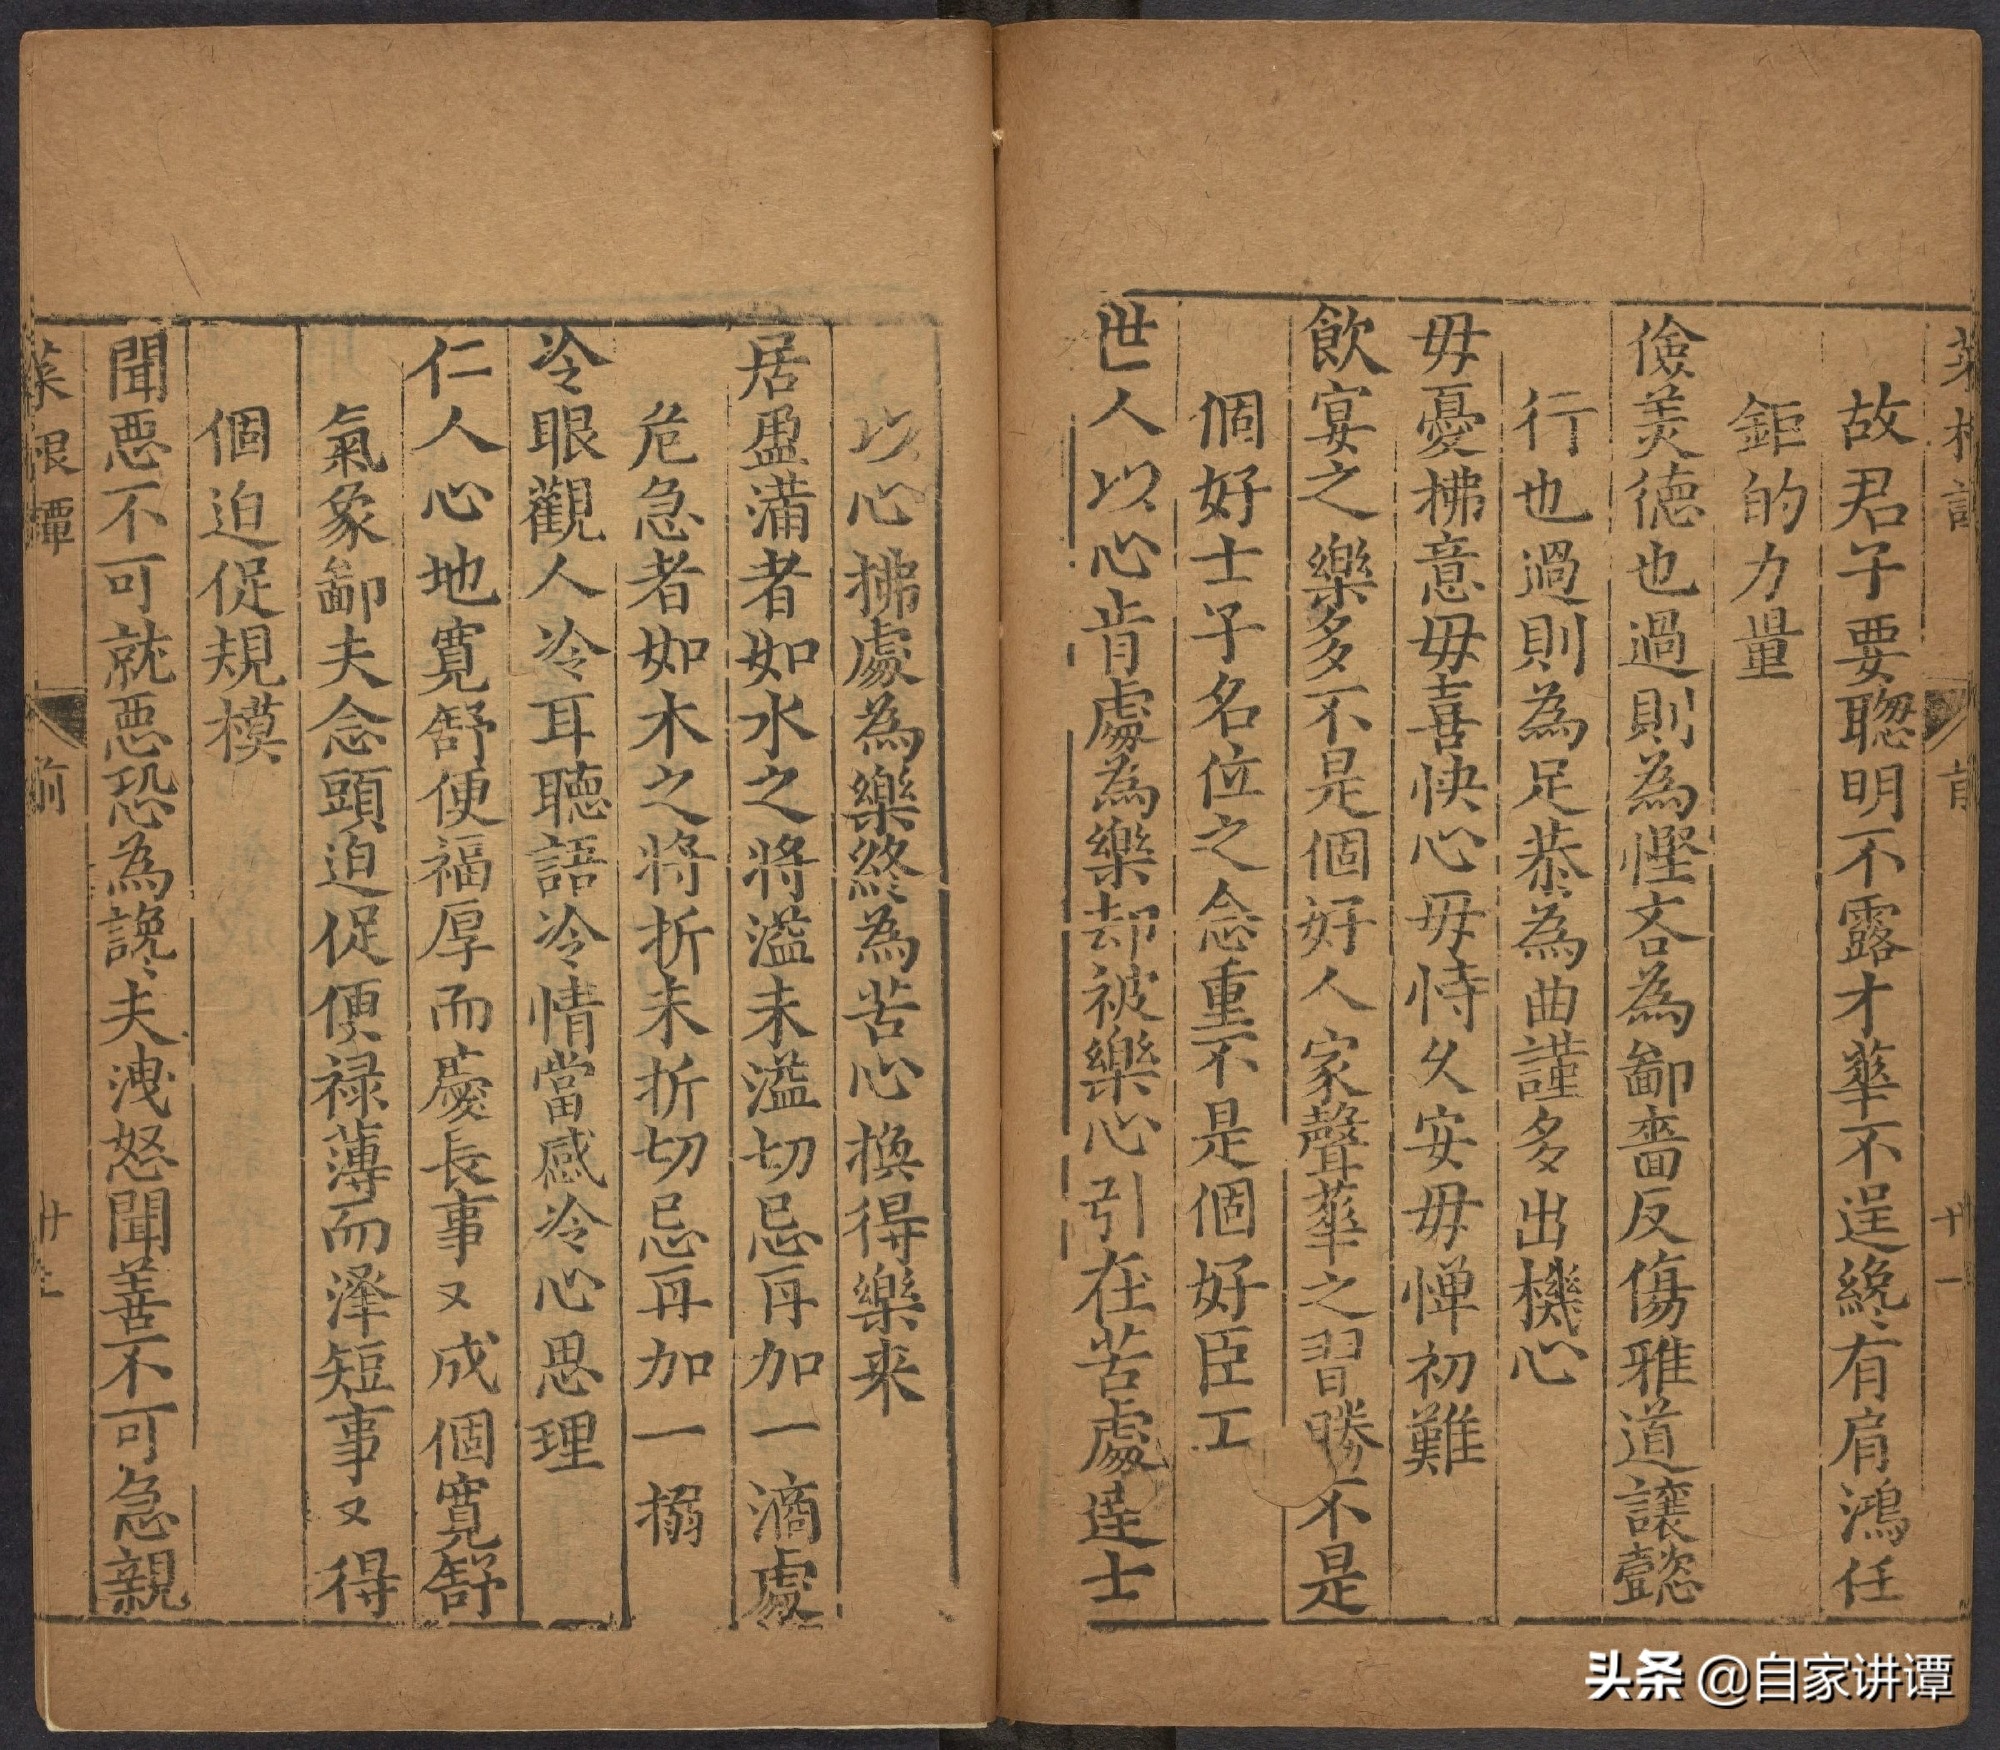 菜根譚
前
十一
故君子要聰明不露才華不逞纔有肩鴻任
鉅的力量
儉美德也過則為慳吝為鄙嗇反傷雅道讓懿
行也過則為足恭為曲謹多出機心
毋憂拂意毋喜快心毋恃久安毋憚初難
飲宴之樂多不是個好人家聲華之習勝不是
個好士子名位之念重不是個好臣工
世人以心肯處為樂却被樂心引在苦處達士
以心拂處為樂終為苦心換得樂来
居盈滿者如水之將溢未溢切忌再加一滴處
危急者如木之將折未折切忌再加一搦
冷眼觀人冷耳聽語冷情當感冷心思理
仁人心地寬舒便福厚而慶長事又成個寬舒
氣象鄙夫念頭迫促便禄薄而澤短事又得
個迫促規模
聞惡不可就惡恐為讒夫洩怒聞善不可急親
菜根譚
前
头条 @自家讲谭